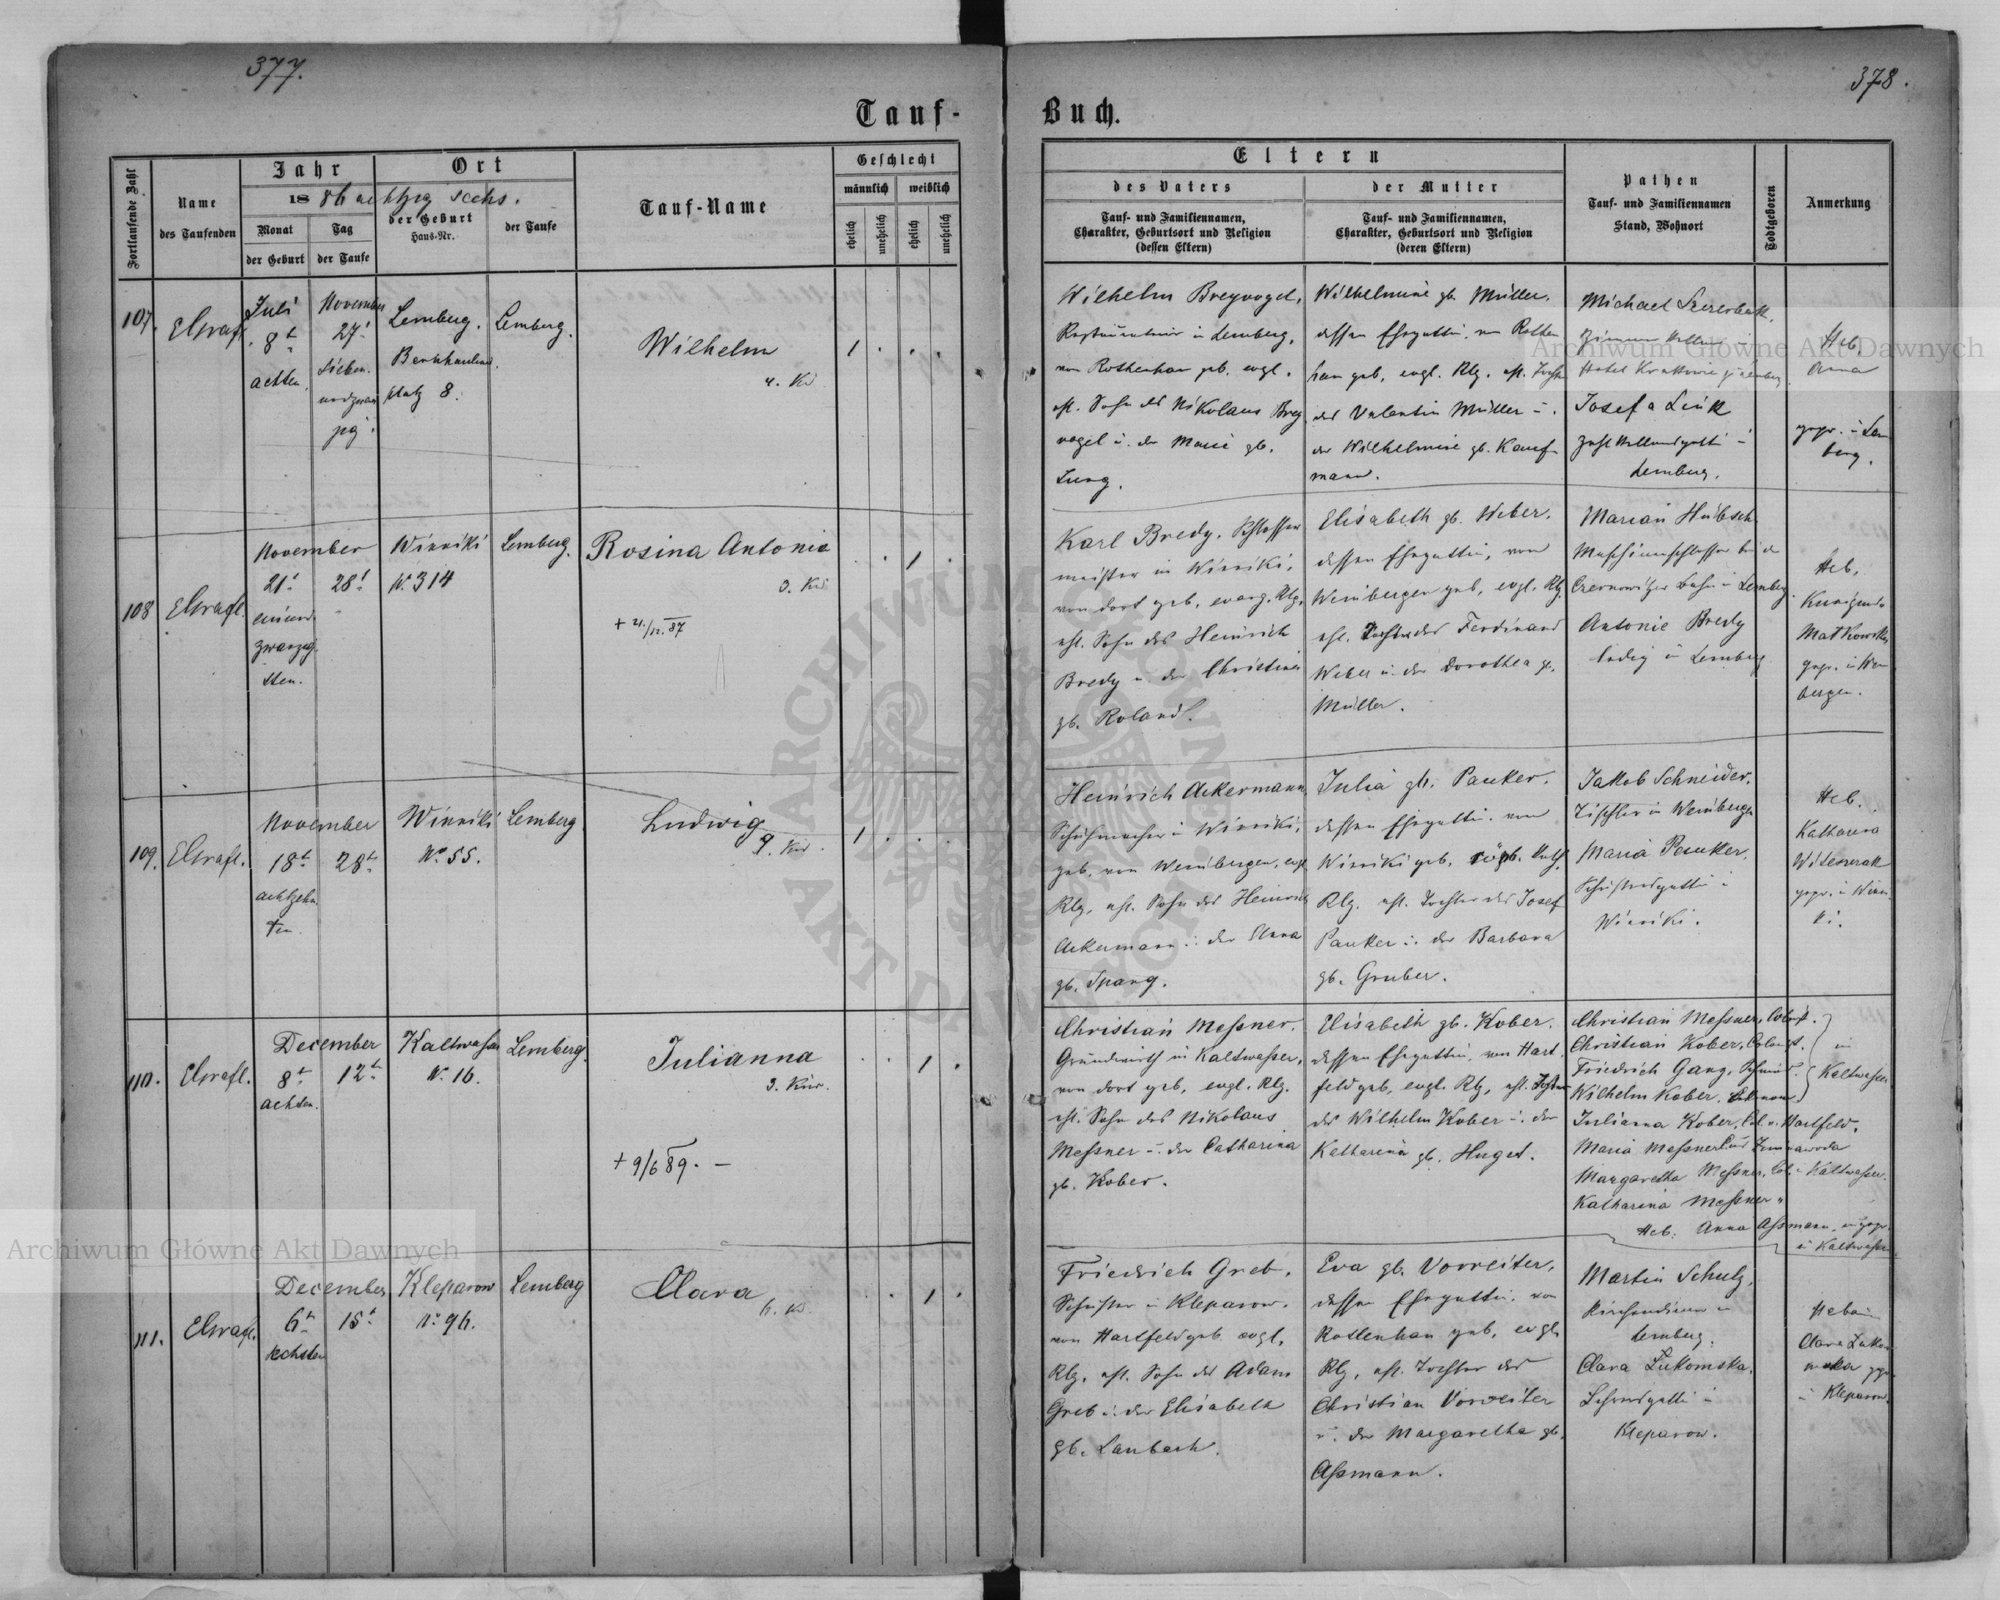 377.
378.
Tauf-
Buch.
Fortlaufende Zahl
Name
des Taufenden
Jahr
1886 achtzig sechs.
Monat
der Geburt
Tag
der Taufe
Ort
der Geburt
Haus-Nr.
der Taufe
Tauf-Name
Geschlecht
männlich
weiblich
ehelich
unehelich
ehelich
unehelich
Eltern
des Vaters
Tauf- und Familiennamen,
Charakter, Geburtsort und Religion
(dessen Eltern)
der Mutter
Tauf- und Familiennamen,
Charakter, Geburtsort und Religion
(deren Eltern)
Pathen
Tauf- und Familiennamen
Stand, Wohnort
Todtgeboren
Anmerkung
107.
Juli
8t
achten.
November
27t
Sieben
undzwan
zig.
Lemberg.
Platz 8.
Lemberg.
Wilhelm
4. Kd
1
Wilhelm Breyvogel,
in Lemberg,
von Rottenhan geb. evgl.
Sohn des Nikolaus Brey
vogel u. der Marie gb.
Jung.
Wilhelmine gb. Müller.
dessen Ehegattin, von Rotten
han geb, evgl. Rlg.
des Valentin Müller u.
der Wilhelmine gb. Kauf
mann.
Michael
Josefa Link
Lemberg.
Heb.
Anna
gepr. in Lem
berg.
108
November
21t
einund
zwanzig
sten.
28t
Winniki
No 314
Lemberg.
Rosina Antonia
3. Kd
+ 21/12. 87
1
Karl Bredy, Schlosser
meister in Winniki,
von dort geb, evang. Rlg,
ehl. Sohn des Heinrich
Bredy u. der Christina
gb. Roland.
Elisabeth gb. Weber.
dessen Ehegattin, von
Weinbergen geb, evgl. Rlg
ehl. Tochter des Ferdinand
Weber u. der Dorothea gb.
Müller.
Marian Hübsch
Maschinenschlosser bei der
Czernowitzer Bahn in Lemberg.
Antonie Bredy
ledig in Lemberg
Heb.
Kunigunda
Matkowska
gepr. in Wein
bergen.
109.
November
18t
achtzehn
ten.
28t
Winniki
No 55.
Lemberg
Ludwig
9. Kd.
1
Heinrich Ackermann,
Schuhmacher in Winniki,
geb. von Weinbergen, evgl
Rlg, ehl. Sohn des Heinrich
Ackermann u. der Anna
gb. Spang.
Julia gb. Pauker.
dessen Ehegattin. von
Winniki geb.
Rlg. ehl. Tochter des Josef
Pauker u. der Barbara
gb. Gruber.
Jakob Schneider.
Tischler in Weinbergen
Maria Pauker,
Winniki.
Heb.
Katharina
gepr. in Winni
ki.
110.
December
8t
achten.
12t
Kaltwasser
No. 16.
Lemberg.
Julianna
3. Kd.
+ 9/6 89. –
1
Christian Meßner.
Grundwirth in Kaltwasser,
von dort geb, evgl. Rlg.
ehl. Sohn des Nikolaus
Meßner u. der Catharina
gb. Kober.
Elisabeth gb. Kober.
dessen Ehegattin, von Hart
feld geb, evgl. Rlg, ehl. Tochter
des Wilhelm Kober u. der
Katharina gb. Huget.
Christian Meßner, Colonist.
Christian Kober, Colonist.
Friedrich Gang, Schmied.
Wilhelm Kober.
in
Kaltwasser
Julianna Kober, Col. u. Hartfeld.
Maria Meßner
Margaretha Meßner, Col. Kaltwasser.
Katharina Meßner "
Heb. Anna Aßmann, gepr.
in Kaltwasser
111.
December
6t
sechsten
15t
Kleparow
No 96.
Lemberg
Clara
6. Kd.
1
Friedrich Greb.
Schuster in Kleparow.
von Hartfeld geb evgl,
Rlg, ehl. Sohn des Adam
Greb u. der Elisabeth
gb. Laubach.
Eva gb. Vorreiter,
dessen Ehegattin. von
Rottenhan geb, evgl.
Rlg, ehl. Tochter des
Christian Vorreiter
u. der Margaretha gb.
Aßmann.
Martin Schulz,
Kirchendiener in
Lemberg.
Clara Łukomska,
Kleparow.
Clara Łukom
ska gepr.
in Kleparow.
Archiwum Główne Akt Dawnych
Archiwum Główne Akt Dawnych
ARCHIWUM GŁÓWNE AKT DAWNYCH